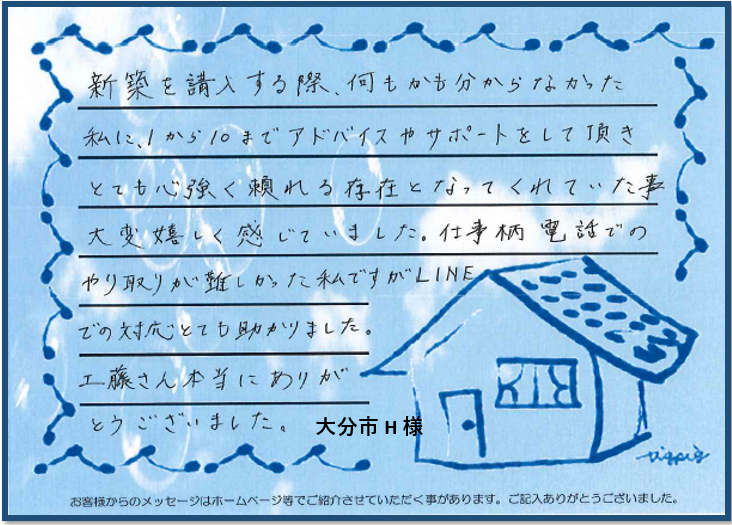 新築を購入する際、何もかも分からなかった
私に、1から10までアドバイスやサポートをして頂き
とても心強く頼れる存在となってくれていた事
大変嬉しく感じていました。仕事柄電話での
やり取りが難しかった私ですがLINE
での対応とても助かりました。
工藤さん本当にありが
とうございました。
大分市 H 様
お客様からのメッセージはホームページ等でご紹介させていただく事があります。ご記入ありがとうございました。